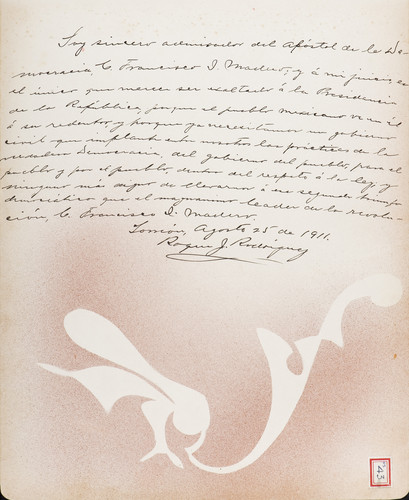 Soy sincero admirador del Apóstol de la De-
mocracia, C. Francisco I. Madero; y á mi juicio, es
el único que merece ser exaltado á la Presidencia
de la República, porque el pueblo mexicano ve en él
á su redentor, y porque ya necesitamos un gobierno
civil que implante entre nosotros las prácticas de la
verdadera Democracia, del gobierno del pueblo, para el
pueblo y por el pueblo, dentro del respeto á la ley, y
ninguno más digno de llevarnos á ese segundo triunfo
democrático que el magnánimo leader de la revolu-
ción, C. Francisco I. Madero.
Torreón, Agosto 25 de 1911.
Roque J. Rodríguez
43